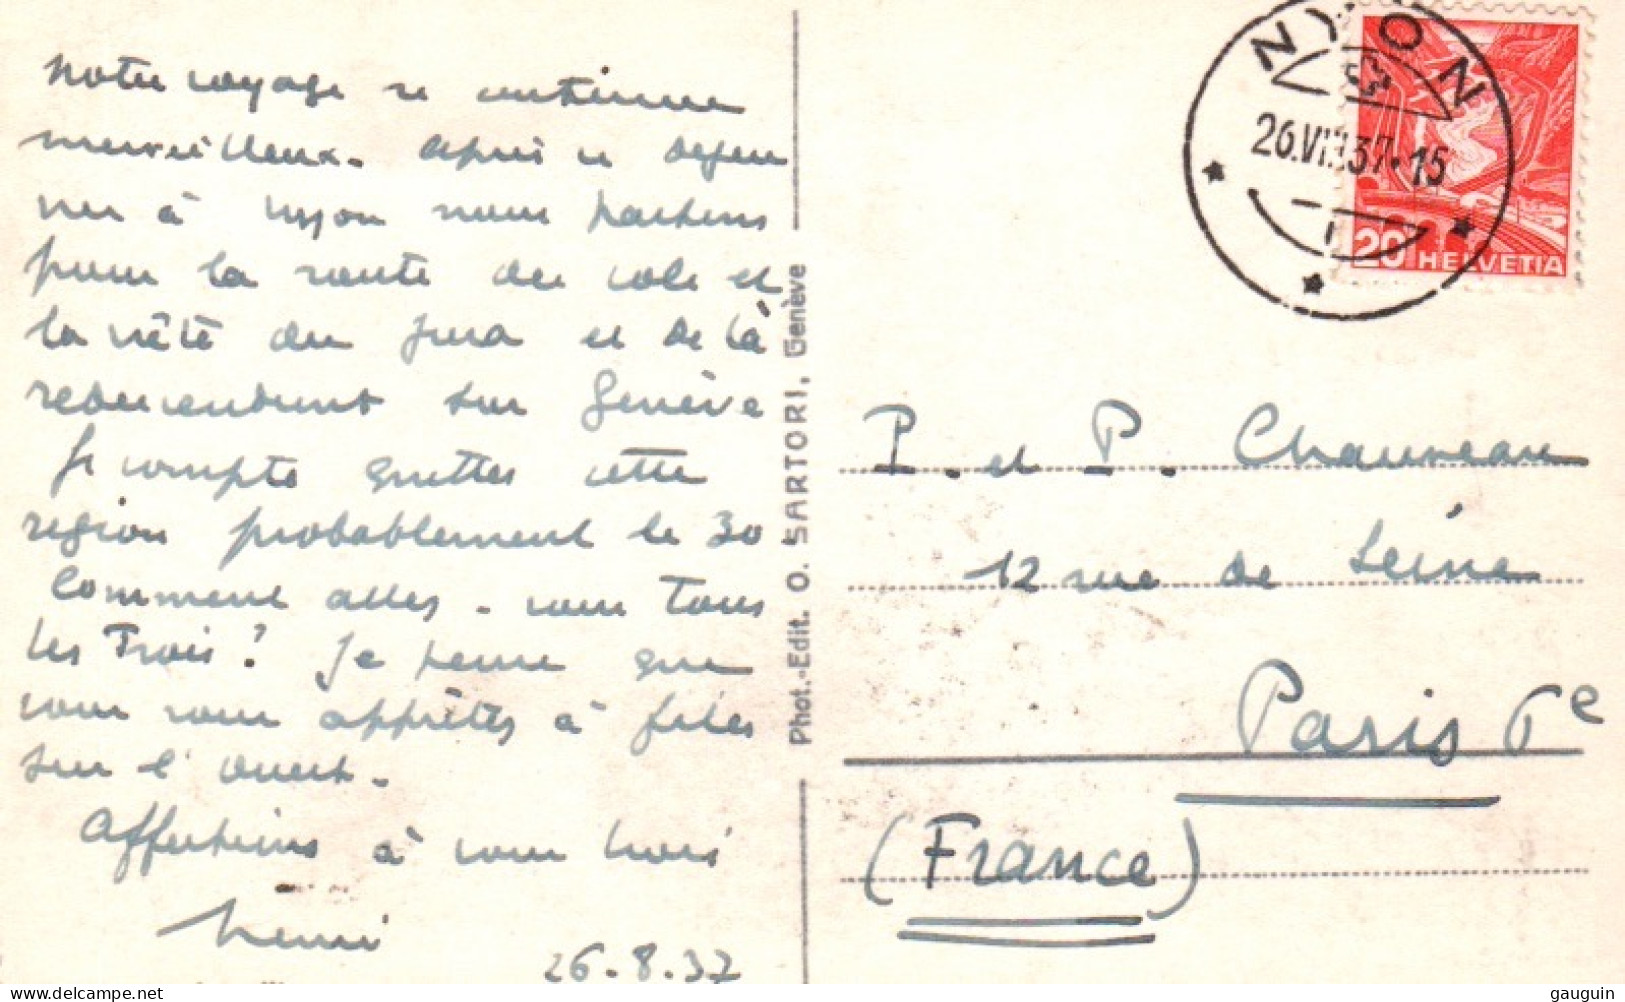 Notre voyage se continue
merveilleux. Après ce déjeu
ner à Nyon nous partons
pour la route des cols et
la crête du Jura et de là
redescendrons sur Genève
Je compte quitter cette
région probablement le 30
Comment allez-vous tous
les Trois? Je pense que
vous vous apprêtez à filer
sur l'ouest.
Affections à vous trois
Henri
26-8.37
Phot.-Edit. O. SARTORI, Genève
NYON
26.VIII.37-15
20 HELVETIA
P. et P. Chauveau
12 rue de Seine
Paris 6e
(France)
delcampe.net
gauguin